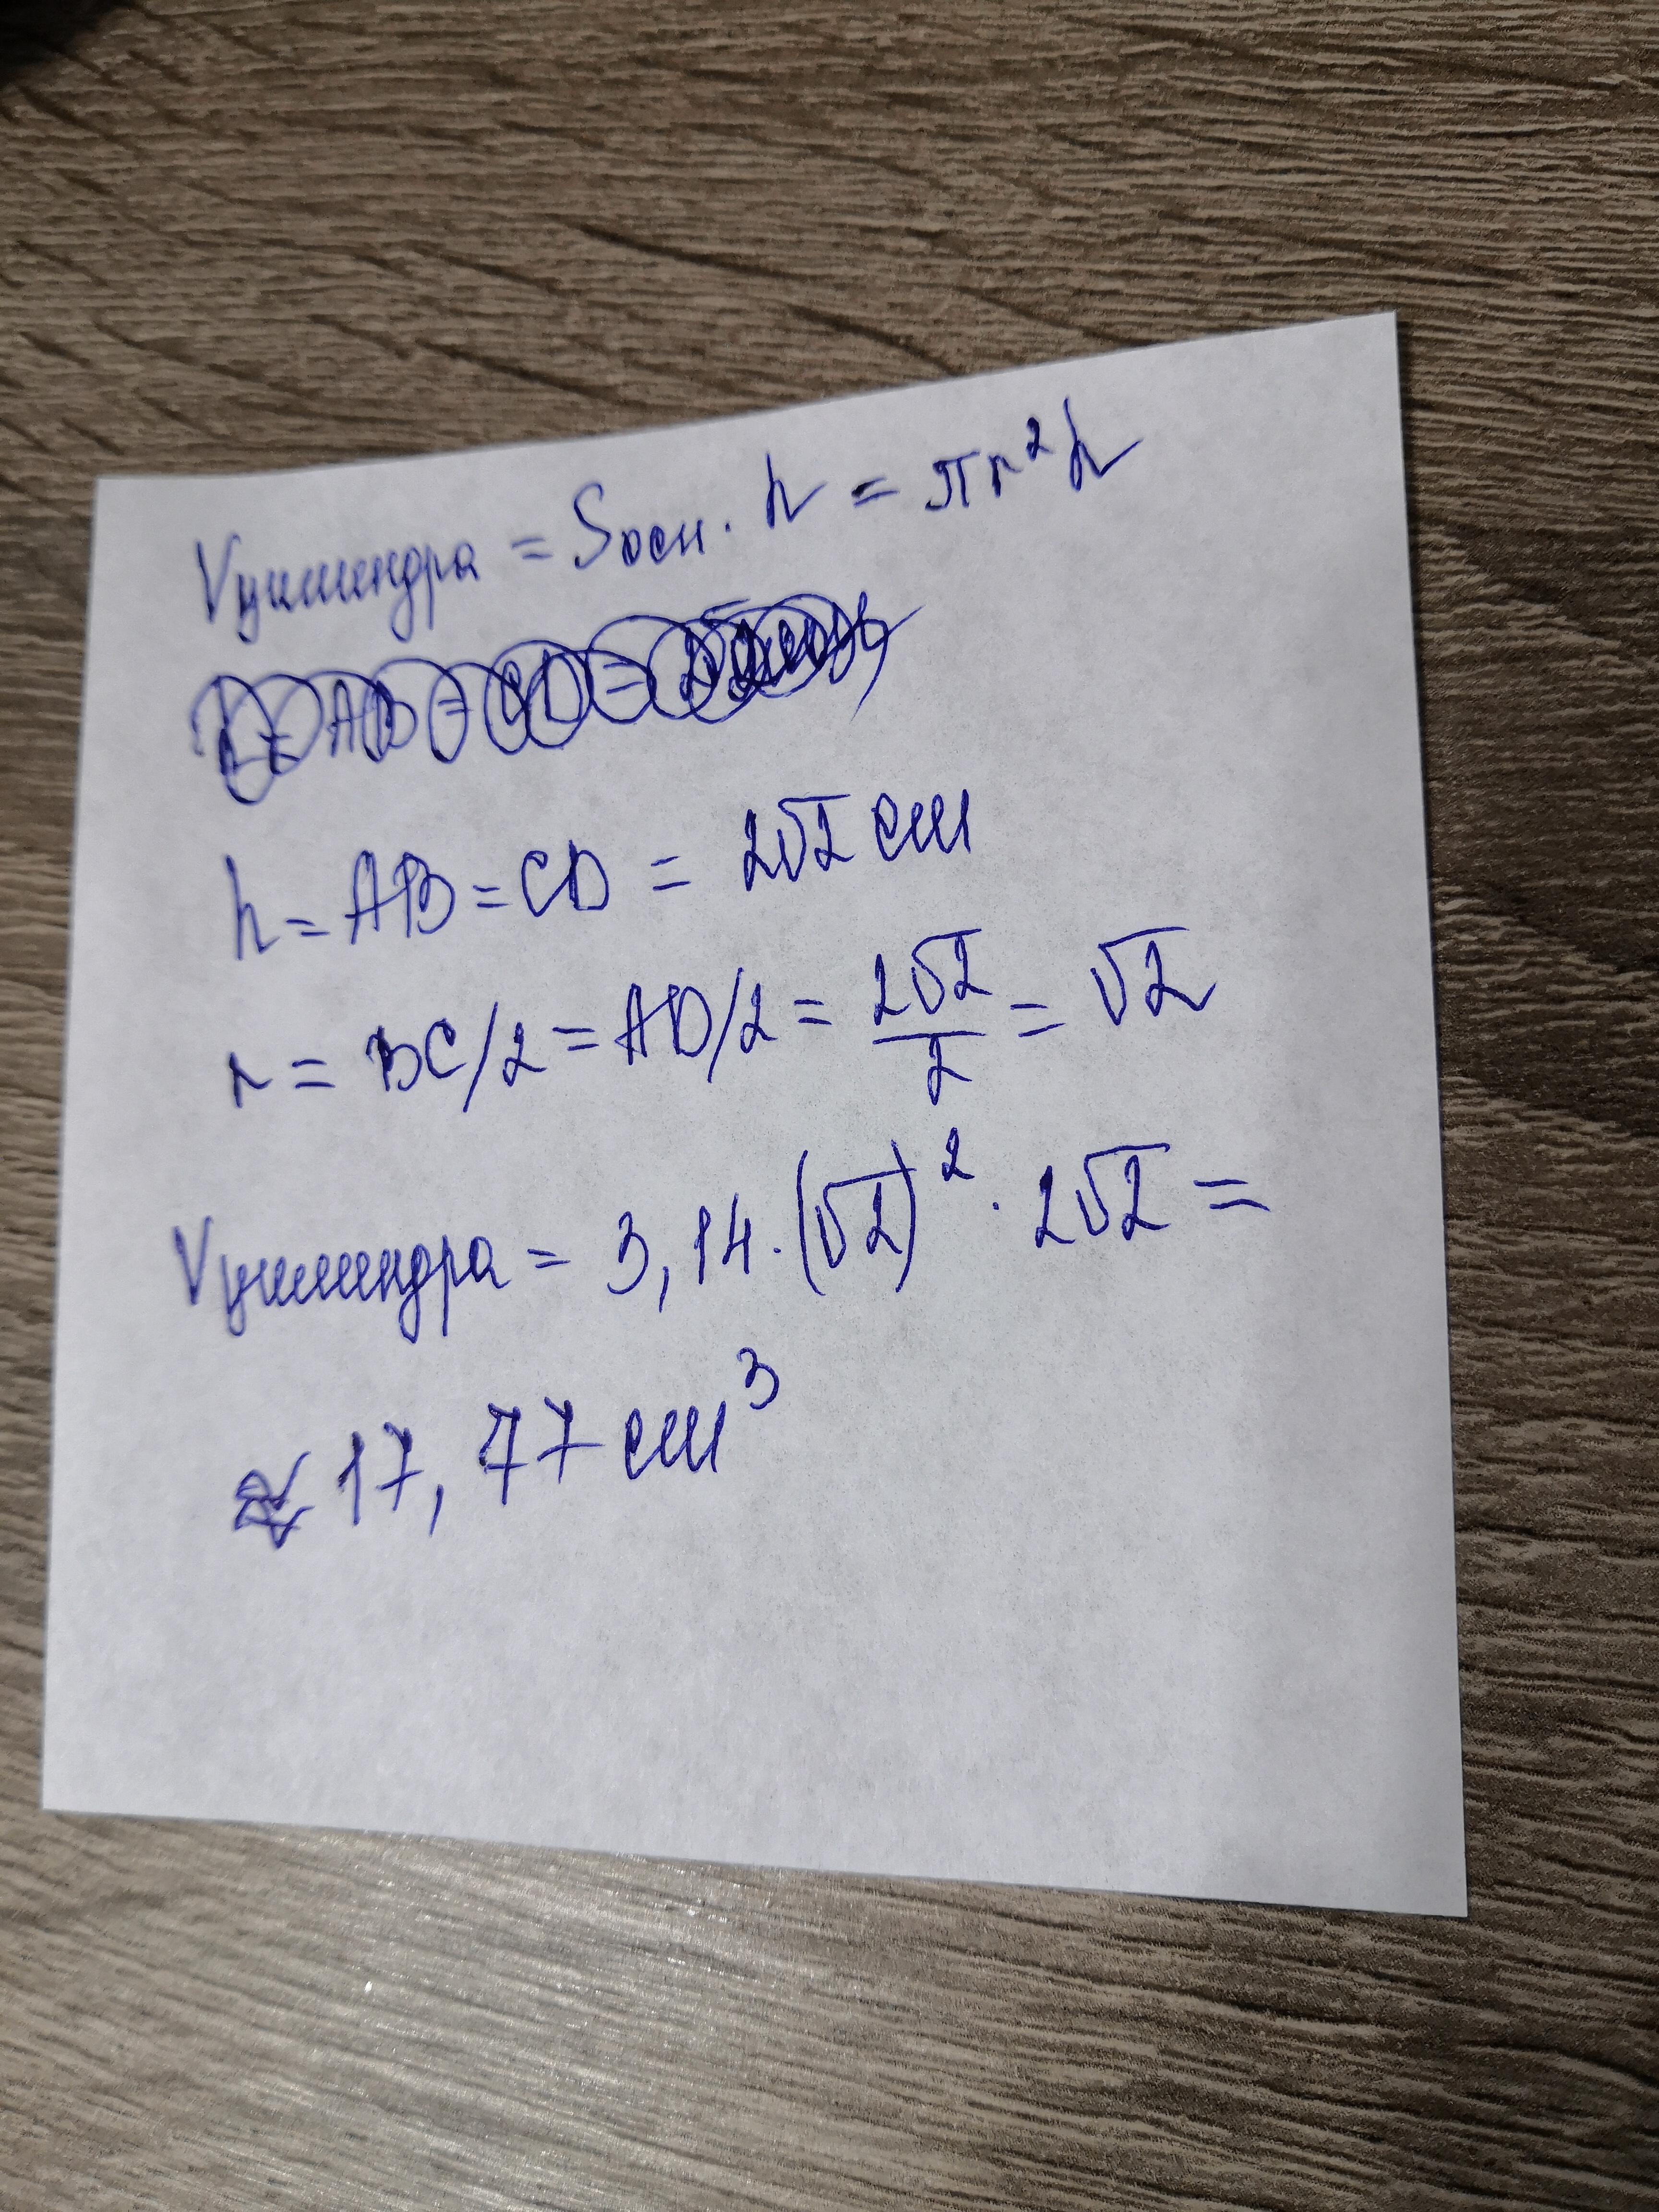 Vцилиндра = Sосн. h = πr²h
h = AB = CD = 2√2 см
r = BC/2 = AD/2 = 2√2/2 = √2
Vцилиндра = 3,14 · (√2)² · 2√2 =
≈ 17,77 см³